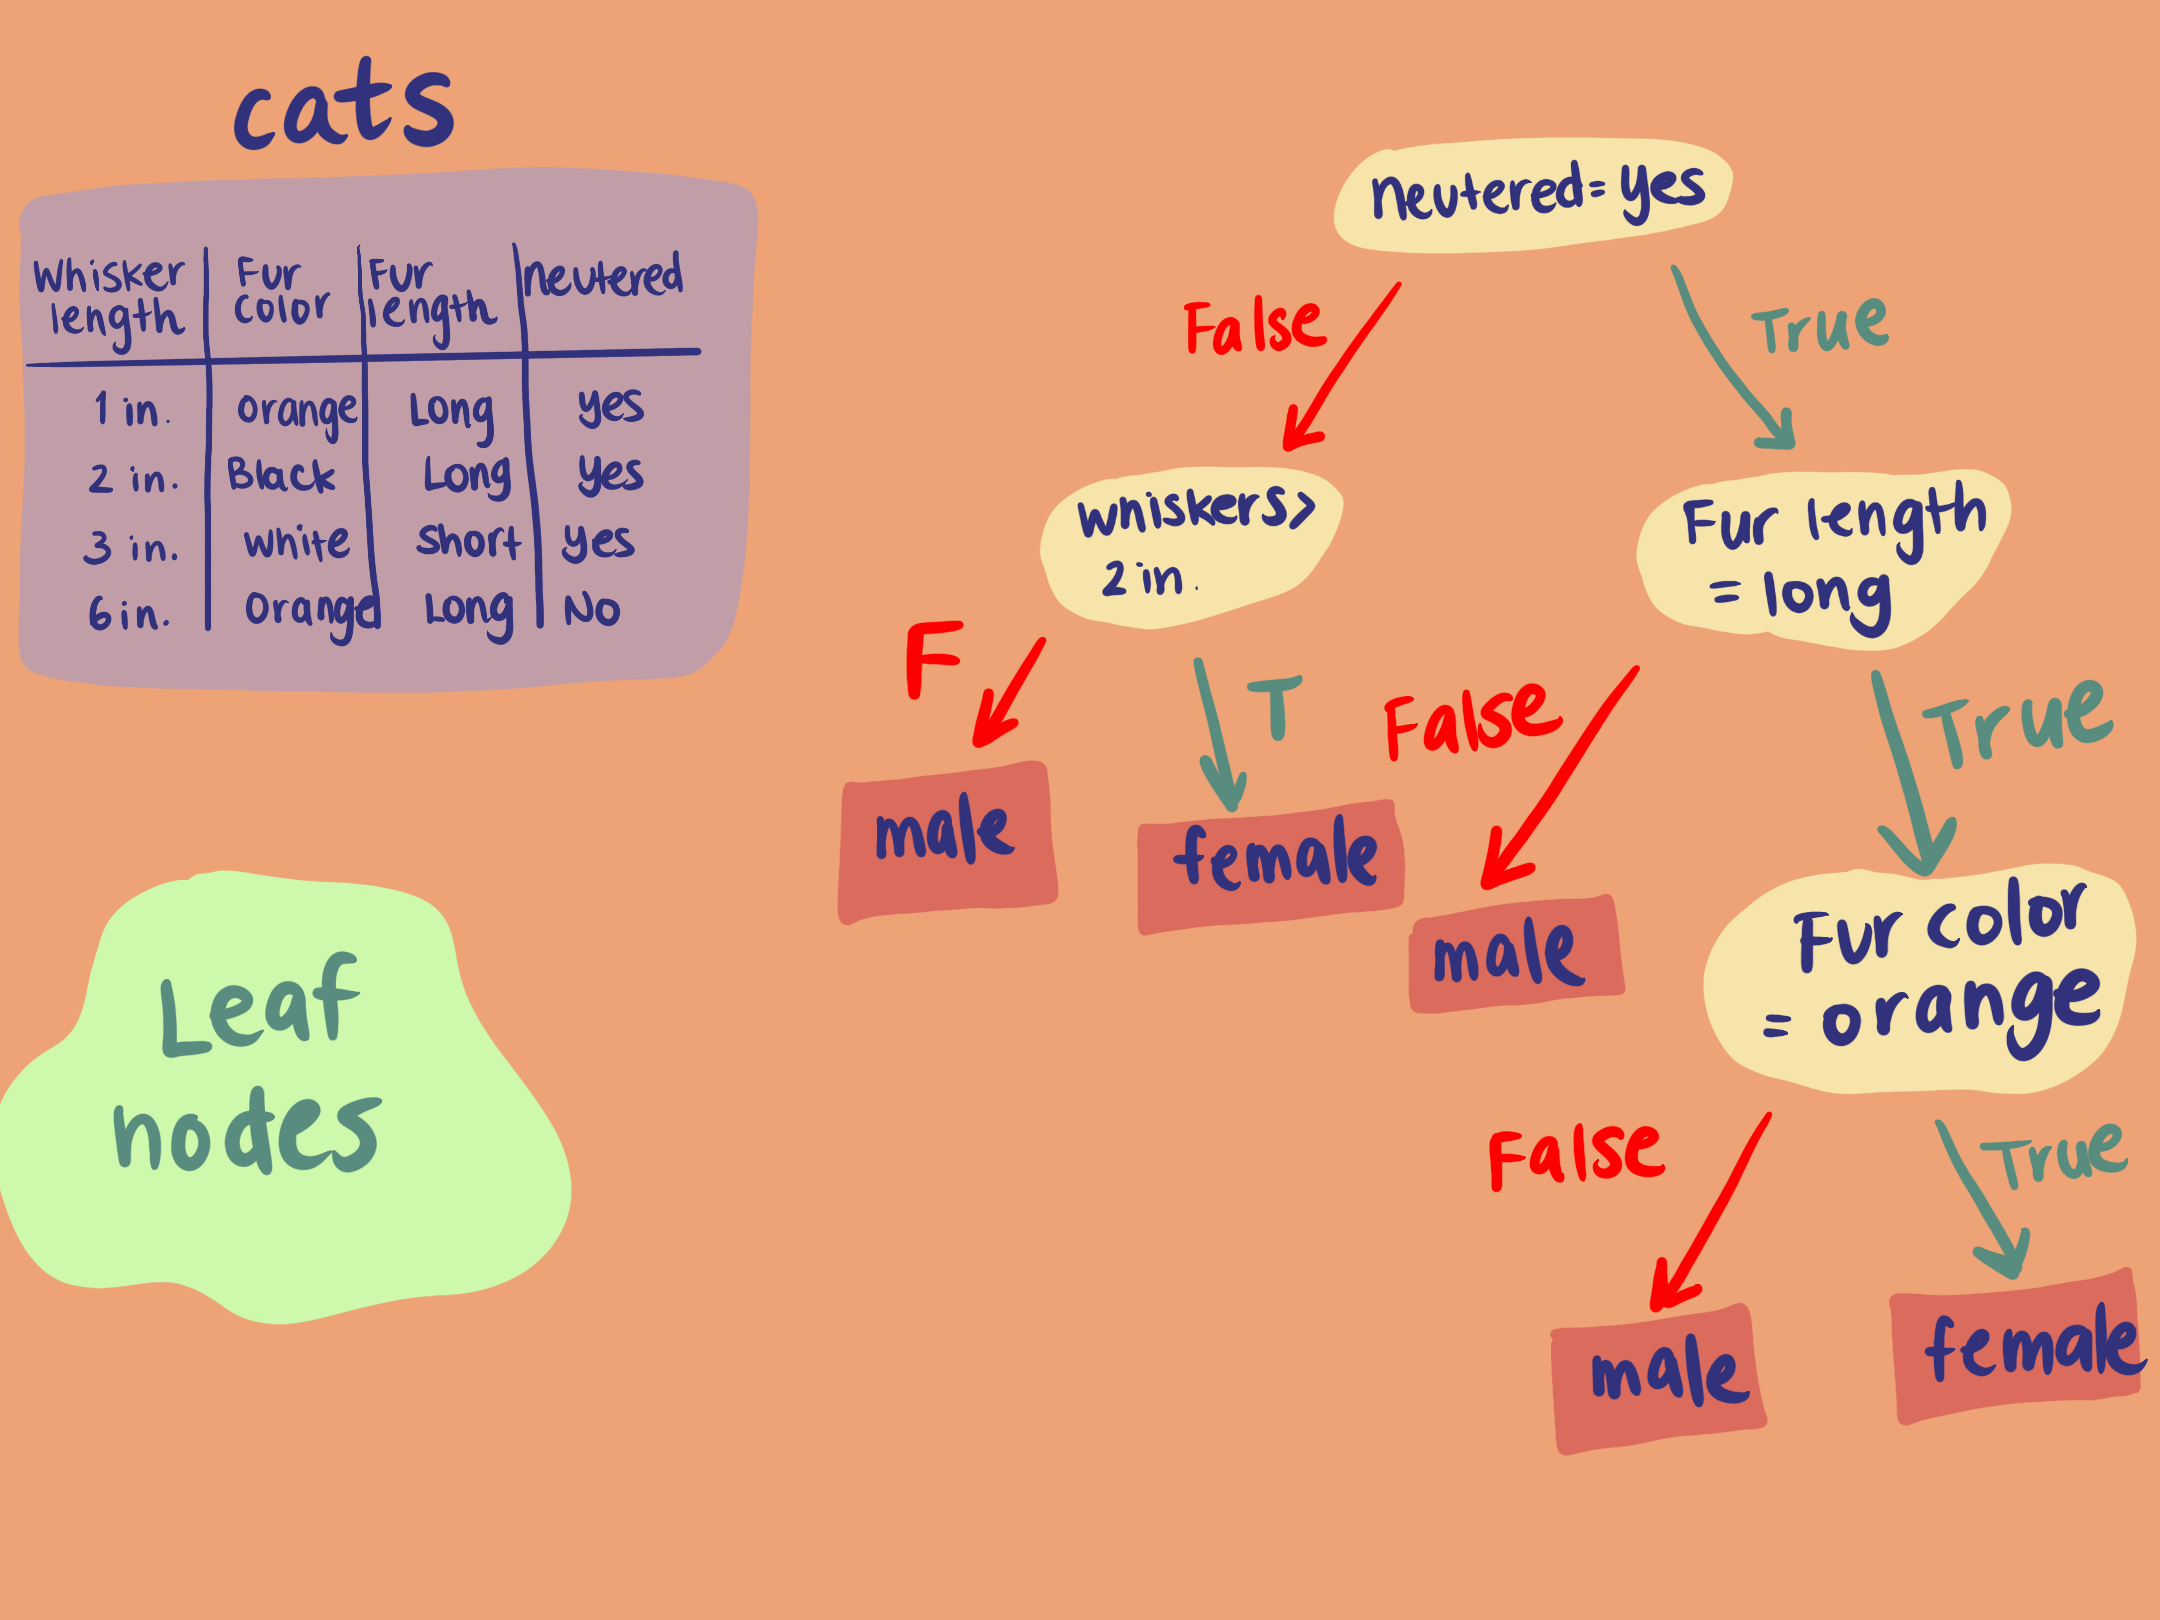 cats
Whisker length | Fur color | Fur length | neutered
1 in. | orange | Long | yes
2 in. | Black | Long | yes
3 in. | white | short | yes
6 in. | orange | Long | No
Leaf
nodes
neutered = yes
False
True
whiskers >
2 in.
Fur length
= long
F
T
False
True
male
female
male
Fur color
= orange
False
True
male
female